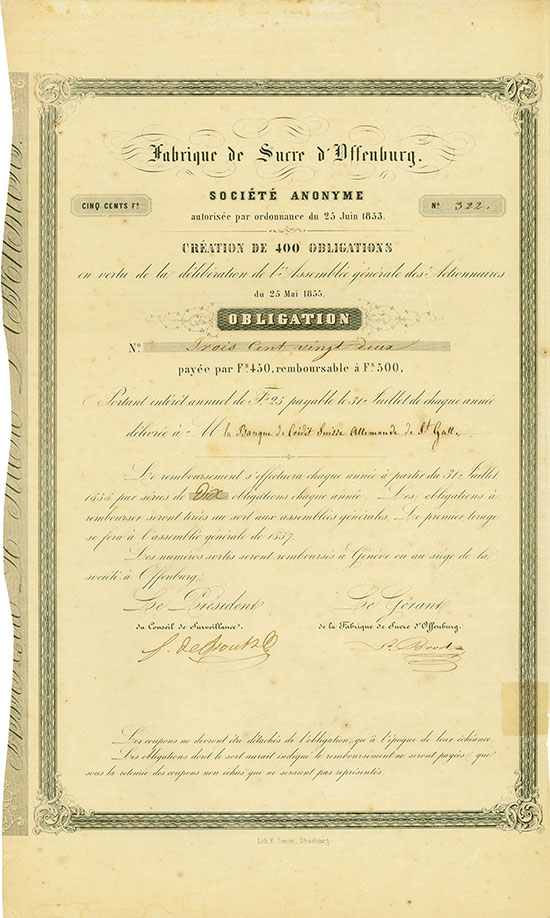 Fabrique de Sucre d'Offenburg.
SOCIÉTÉ ANONYME
CINQ CENTS Fs
No 322.
autorisée par ordonnance du 25 Juin 1853.
CRÉATION DE 400 OBLIGATIONS
en vertu de la délibération de l'Assemblée générale des Actionnaires
du 25 Mai 1855.
OBLIGATION
No Trois Cent vingt-deux
payée par Fs 450, remboursable à Fs 500,
Portant intérêt annuel de Fs 25 payable le 31 Juillet de chaque année
délivrée à M la Banque de Crédit Suisse Allemande de St Gall.
Le remboursement s'effectuera chaque année à partir du 31 Juillet
1858 par séries de Dix obligations chaque année. Les obligations à
rembourser seront tirées au sort aux assemblées générales. Le premier tirage
se fera à l'assemblée générale de 1857.
Les numéros sortis seront remboursés à Genève ou au siège de la
société à Offenburg.
Le Président
du Conseil de Surveillance.
Le Gérant
de la Fabrique de Sucre d'Offenburg.
Les coupons ne devront être détachés de l'obligation qu'à l'époque de leur échéance.
Les obligations dont le sort aurait indiqué le remboursement ne seront payées que
sous la retenue des coupons non échus qui ne seraient pas représentés.
Strasbourg.